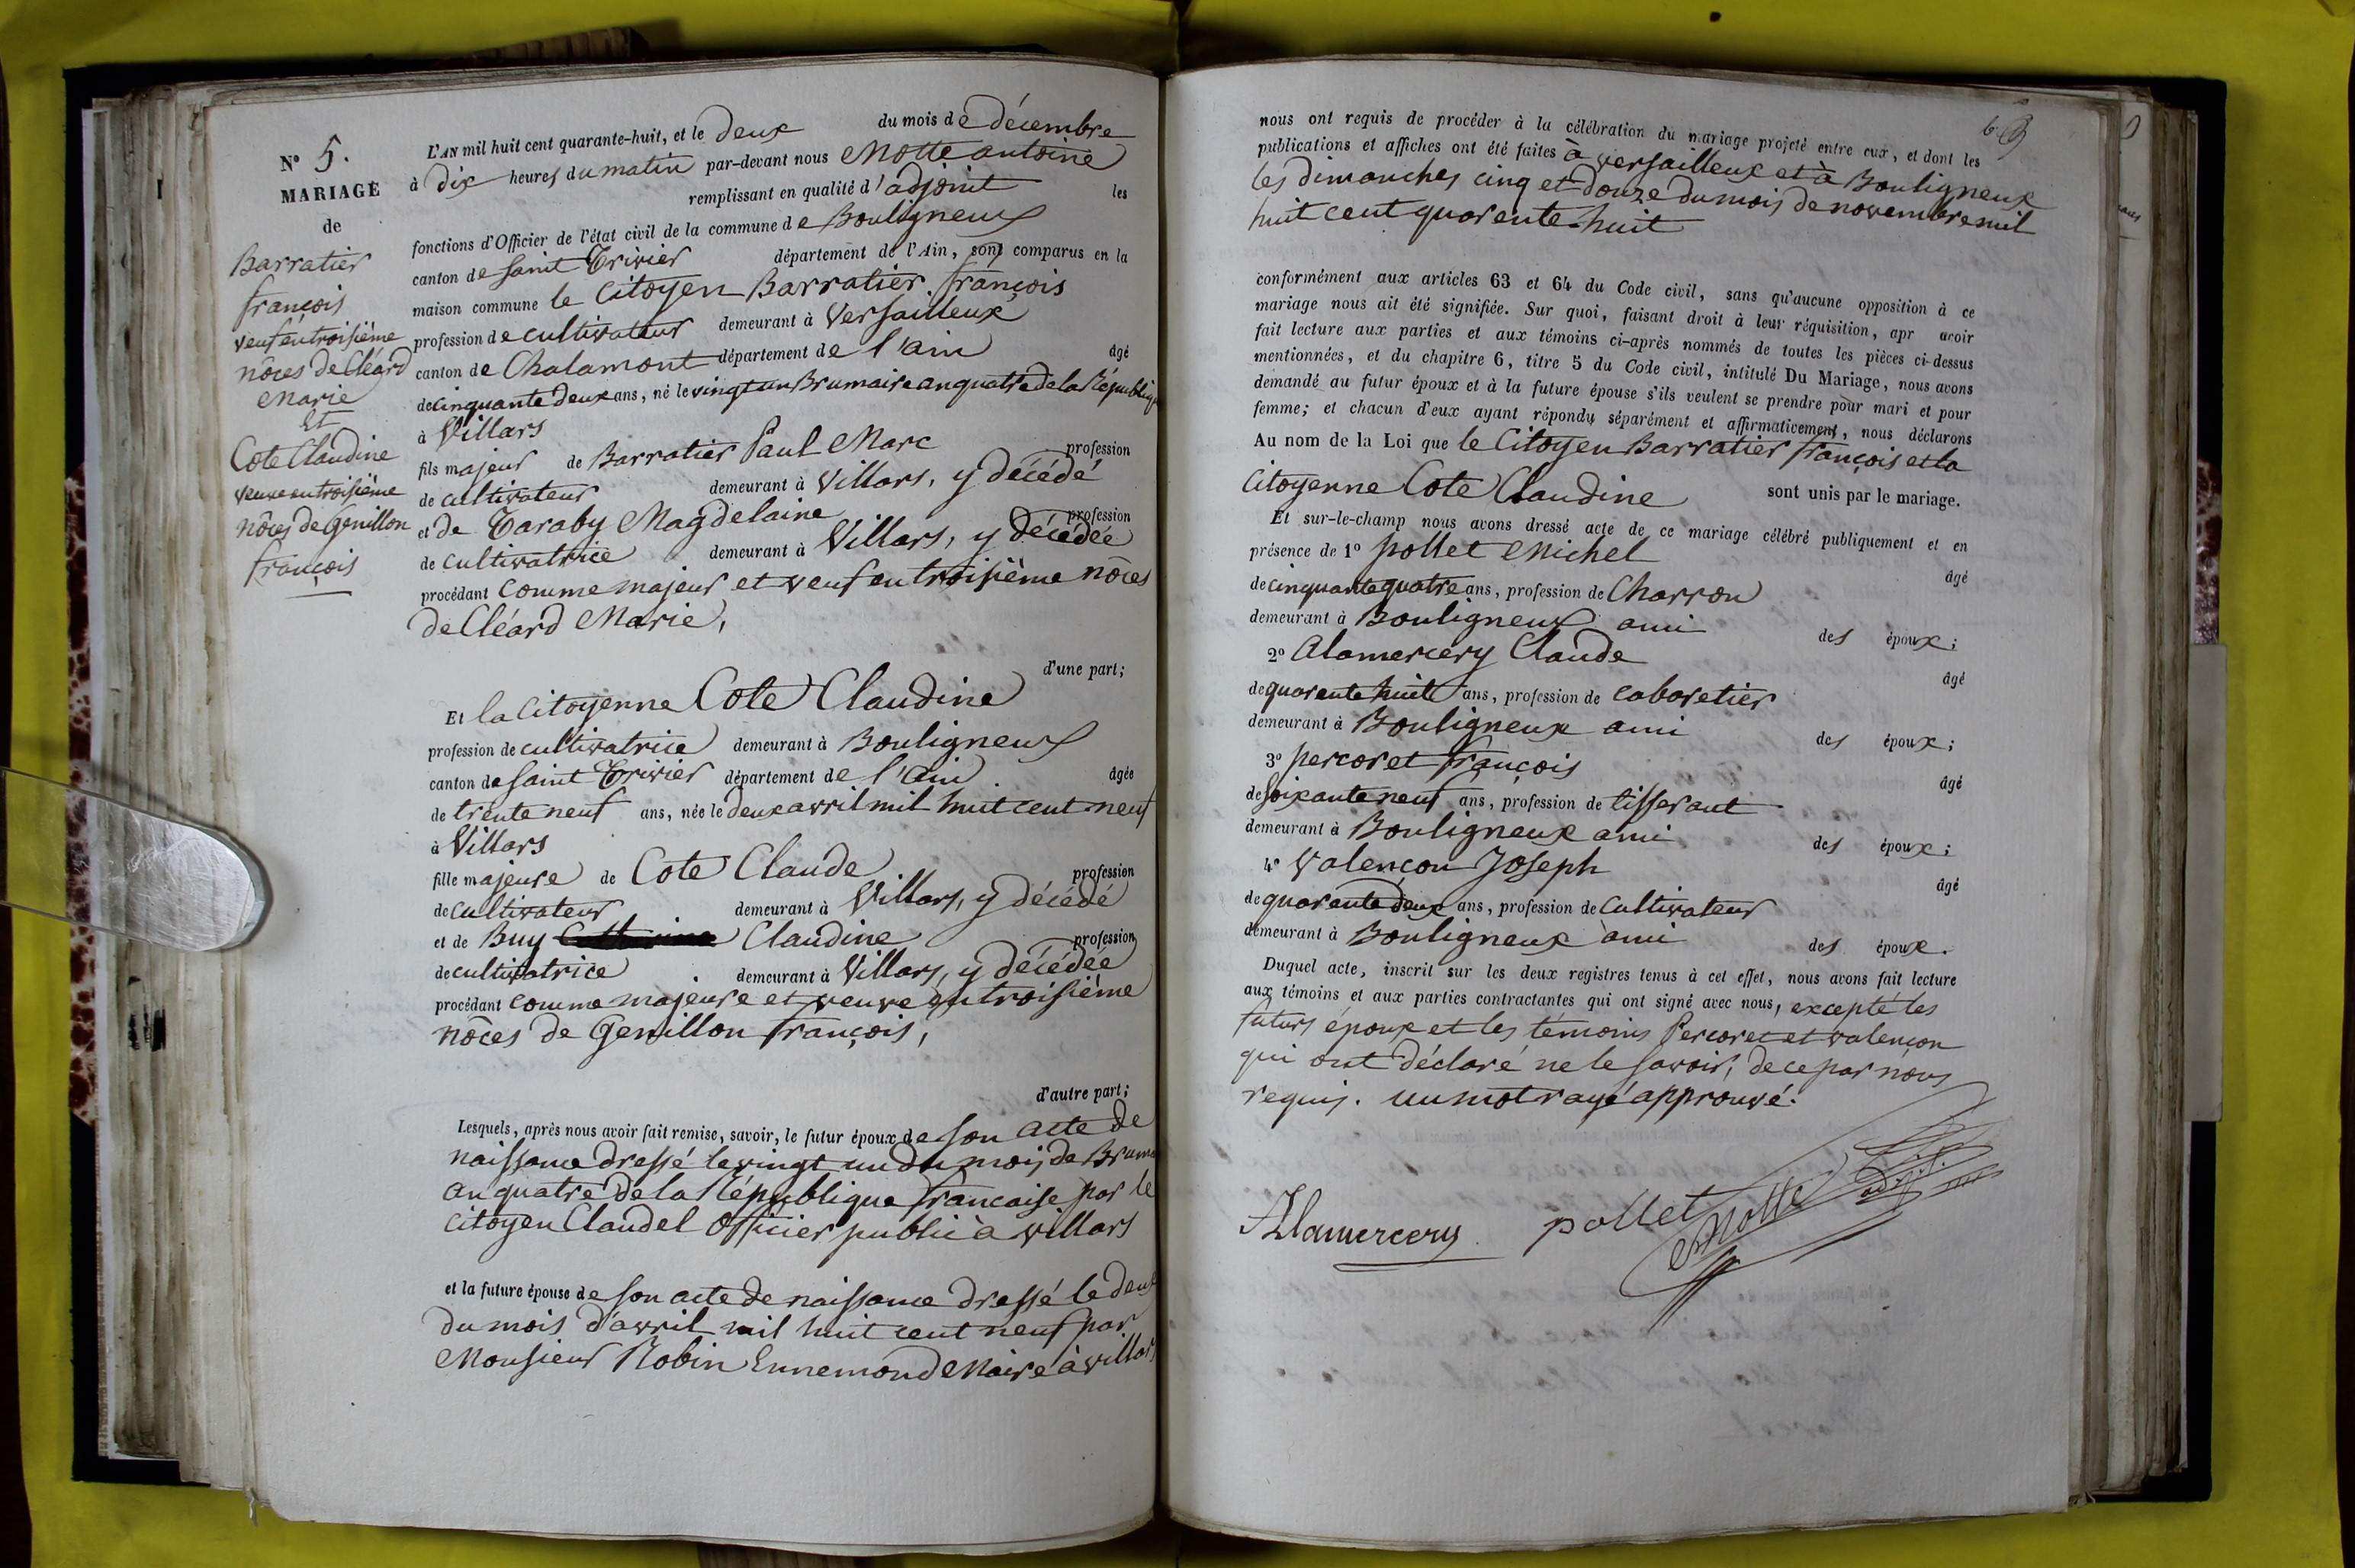 N° 5.
MARIAGE
de
Barratier
françois
veuf en troisième
nôces de Cléard
Marie
Et
Cote Claudine
veuve en troisième
nôces de Genillon
françois
L'AN mil huit cent quarante-huit, et le deux du mois de décembre
à dix heures du matin par-devant nous Motte antoine
remplissant en qualité d'adjoint les
fonctions d'Officier de l'état civil de la commune de Bouligneux
canton de saint Trivier département de l'Ain, sont comparus en la
maison commune le Citoyen Barratier françois
profession de cultivateur demeurant à Versailleux
canton de Chalamont département de l'ain âgé
de cinquante deux ans, né le vingt un Brumaire an quatre de la Républiq
à Villars
fils majeur de Barratier Paul Marc profession
de cultivateur demeurant à Villars, y décédé
et de Taraby Magdelaine profession
de cultivatrice demeurant à Villars, y décédée
procédant comme majeur et veuf en troisième nôces
de Cléard Marie,
d'une part;
Et la Citoyenne Cote Claudine
profession de cultivatrice demeurant à Bouligneux
canton de saint Trivier département de l'ain âgée
de trente neuf ans, née le deux avril mil huit cent neuf
à Villars
fille majeure de Cote Claude profession
de cultivateur demeurant à Villars, y décédé
et de Buy Catherine Claudine profession
de cultivatrice demeurant à Villars, y décédée
procédant comme majeure et veuve en troisième
nôces de Genillon françois,
d'autre part;
Lesquels, après nous avoir fait remise, savoir, le futur époux de son acte de
naissance dressé le vingt un du mois de Brum
an quatre de la République francaise par le
citoyen Claudel Officier public à Villars
et la future épouse de son acte de naissance dressé le deux
du mois d'avril mil huit cent neuf par
Monsieur Robin Ennemond Maire à villars
63
nous ont requis de procéder à la célébration du mariage projeté entre eux, et dont les
publications et affiches ont été faites à versailleux et à Bouligneux
les dimanches cinq et douze du mois de novembre mil
huit cent quarente-huit
conformément aux articles 63 et 64 du Code civil, sans qu'aucune opposition à ce
mariage nous ait été signifiée. Sur quoi, faisant droit à leur réquisition, apr avoir
fait lecture aux parties et aux témoins ci-après nommés de toutes les pièces ci-dessus
mentionnées, et du chapitre 6, titre 5 du Code civil, intitulé Du Mariage, nous avons
demandé au futur époux et à la future épouse s'ils veulent se prendre pour mari et pour
femme; et chacun d'eux ayant répondu séparément et affirmativement, nous déclarons
Au nom de la Loi que le Citoyen Barratier françois et la
Citoyenne Cote Claudine sont unis par le mariage.
Et sur-le-champ nous avons dressé acte de ce mariage célébré publiquement et en
présence de 1° pollet Michel âgé
de cinquante quatre ans, profession de Charron
demeurant à Bouligneux ami des époux;
2° Alamercery Claude âgé
de quarente huit ans, profession de cabaretier
demeurant à Bouligneux ami des époux;
3° percoret françois âgé
de soixante neuf ans, profession de tisserant
demeurant à Bouligneux ami des époux;
4° Valençon Joseph âgé
de quarente deux ans, profession de Cultivateur
demeurant à Bouligneux ami des époux.
Duquel acte, inscrit sur les deux registres tenus à cet effet, nous avons fait lecture
aux témoins et aux parties contractantes qui ont signé avec nous, excepté les
futurs époux et les témoins Percoret et valençon
qui ont déclaré ne le savoir, de ce par nous
requis. un mot rayé approuvé.
Alamercery pollet Motte adj.